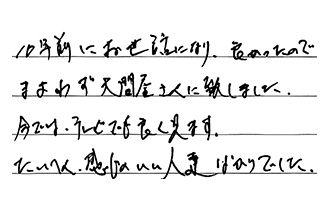 10年前にお世話になり、良かったので
まよわず天問屋さんに致しました。
今では、テレビでも良く見ます。
たいへん、感じのいい人達ばかりでした。